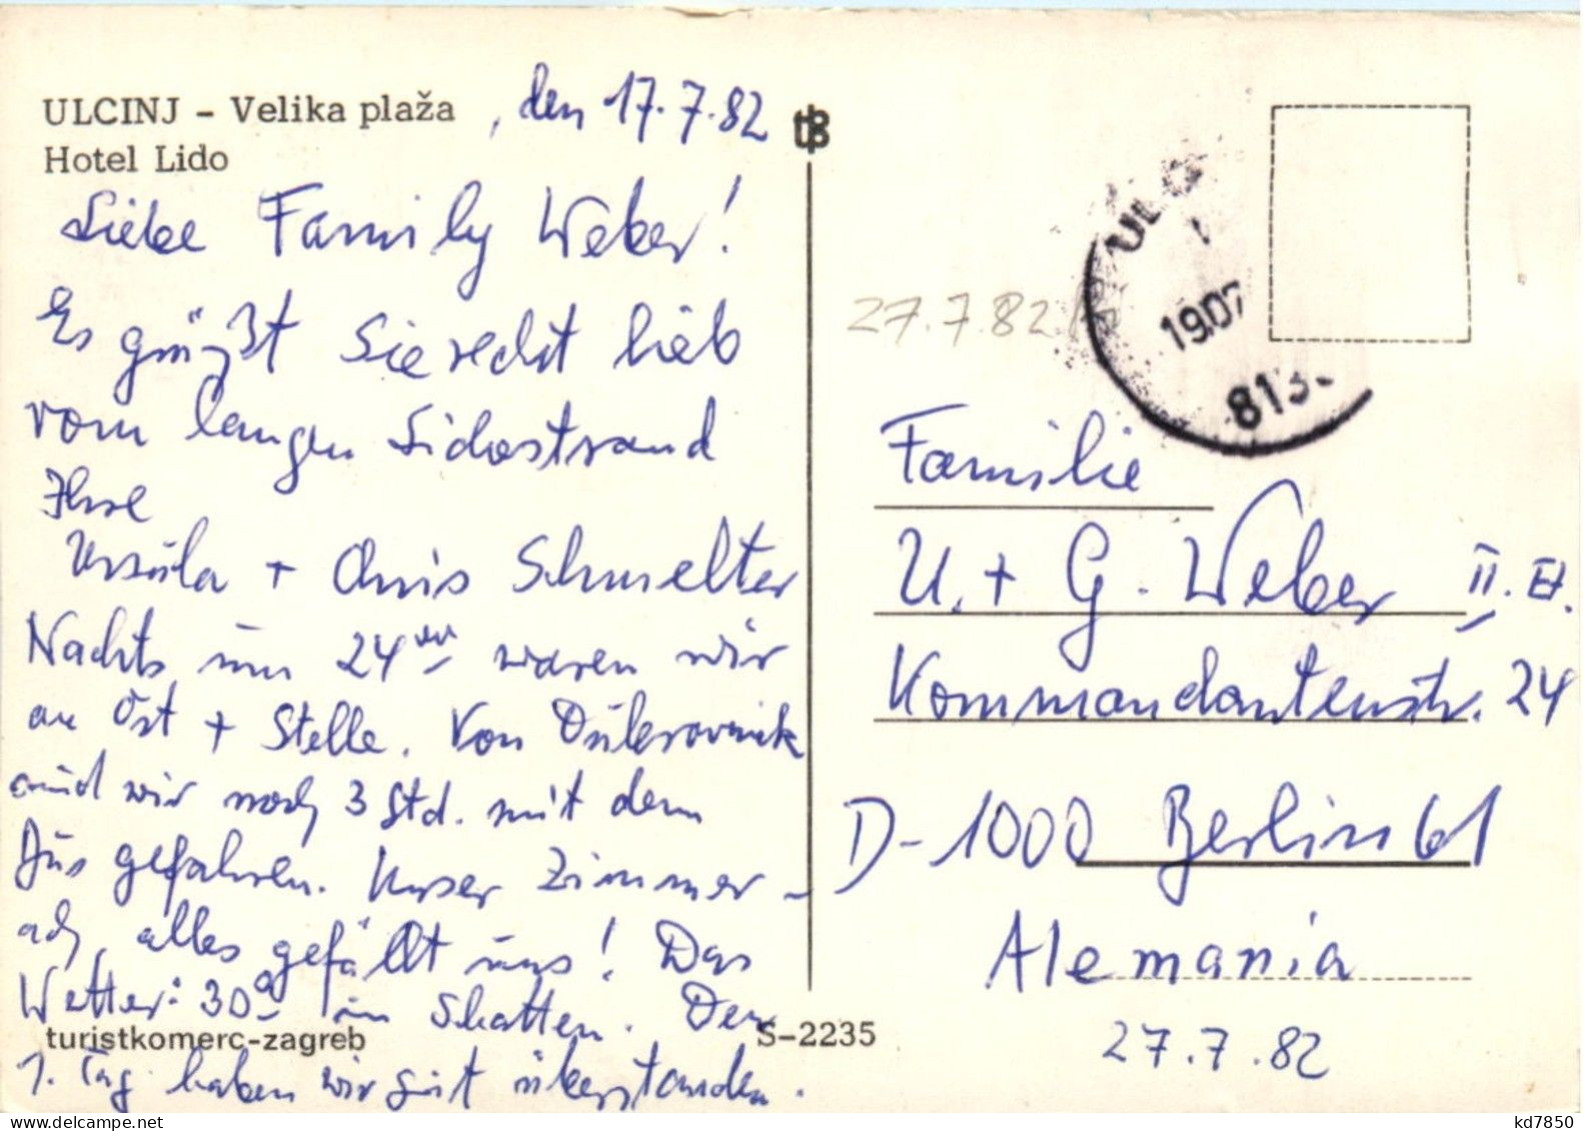 ULCINJ - Velika plaža , den 17.7.82
Hotel Lido
Liebe Family Weber!
Es grüßt Sie recht lieb
vom langen Lidostrand
Ihre
Ursula + Chris Schmelter
Nachts um 24 waren wir
an Ort + Stelle. Von Dubrovnik
sind wir noch 3 Std. mit dem
Bus gefahren. Unser Zimmer -
ach, alles gefällt uns! Das
Wetter: 30° im Schatten. Den
turistkomerc-zagreb
1. Tag haben wir gut überstanden.
S-2235
27.7.82
ULC
19.07
813
Familie
U. + G. Weber II. Et.
Kommandantenstr. 24
D-1000 Berlin 61
Alemania
27.7.82
www.delcampe.net
kd7850